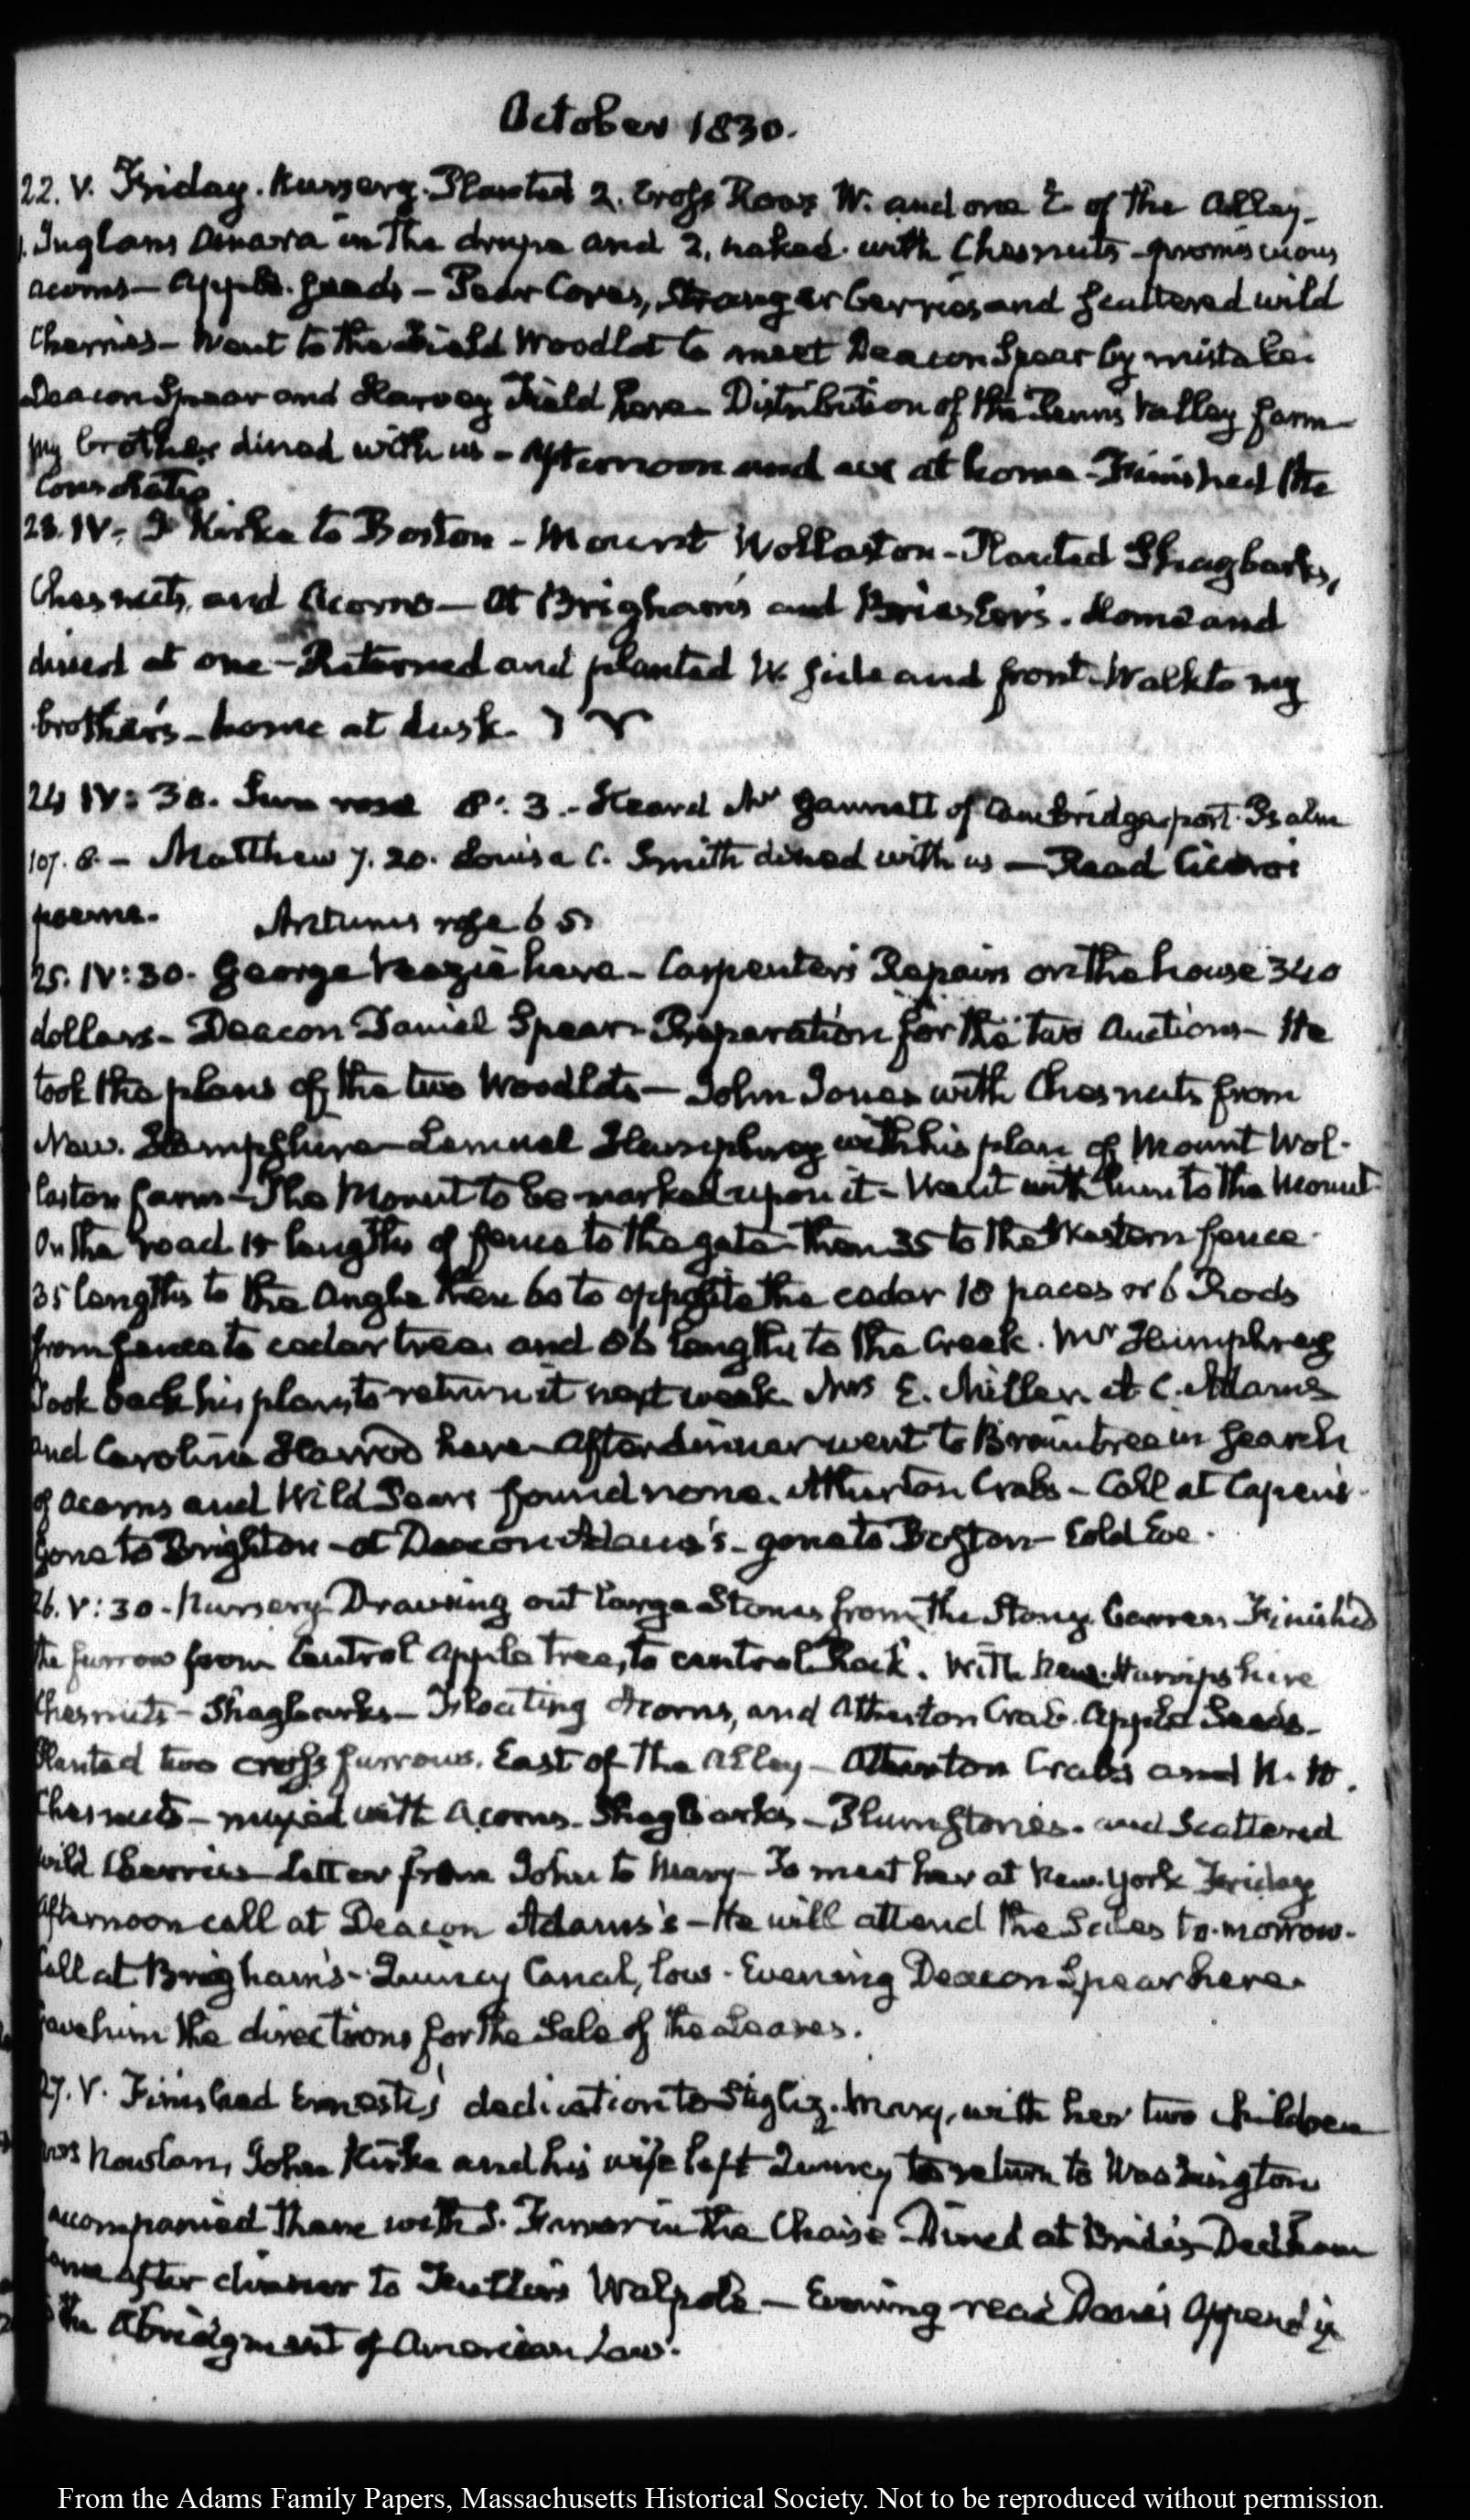 October 1830.
22. V. Friday. Nursery. Planted 2. Cross Rows W. and one E of the Alley.
1. Juglans Amara in the drupe and 2. naked. with Chesnuts - promiscuous
acorns - Apple. seeds - Pear Cores, Stranger berries and scattered wild
Cherries - Went to the Field Woodlot to meet Deacon Spear by mistake.
Deacon Spear and Harvey Field here. Distribution of the Penns Valley farm
My brother dined with us - Afternoon and eve at home - Finished the
23. IV. J Kirke to Boston - Mount Wollaston - Planted Shagbarks,
Chesnuts, and Acorns - At Brigham's and Briesler's. Home and
dined at one - Returned and planted W. side and front. Walk to my
brother's - home at dusk.
24 IV: 30. Sun rose 8: 3. - Heard Mr Gannett of Cambridgeport. Psalm
107. 8. - Matthew 7. 20. Louisa C. Smith dined with us - Read
poems. Arcturus rose 6 5
25. IV: 30. George Veazie here - Carpenter's Repairs on the house 340
dollars - Deacon Daniel Spear - Preparation for the two Auctions - He
took the plans of the two Woodlots - John Jones with Chesnuts from
New. Hampshire - Lemuel Humphrey with his plan of Mount Wol-
laston farm - The Mount to be marked upon it - Went with him to the Mount
On the road 15 lengths of fence to the gate - then 35 to the Western fence
35 lengths to the Angle then 60 to opposite the cedar 18 paces or 6 Rods
from fence to cedar tree. and 86 lengths to the Creek. Mr Humphrey
Took back his plan, to return it next week. Mrs E. Miller. C. Adams
and Caroline Harrod here - After dinner went to Braintree in search
of acorns and Wild Pears found none. Atherton Crabs - Call at Capen's.
gone to Brighton - at Deacon Adams's - gone to Boston - Cold Eve.
26. V: 30 - Nursery Drawing out large Stones from the Stony Barren Finished
the furrow from Central apple tree, to central Rock. With New. Hampshire
Chesnuts - Shagbarks - Floating Acorns, and Atherton Crab. Apple Seeds.
Planted two cross furrows. East of the Alley - Atherton Crabs and N. H.
Chesnuts - mixed with Acorns - Shagbarks - Plumstones. and Scattered
wild Cherries - Letter from John to Mary - To meet her at New. York Friday
Afternoon call at Deacon Adams's - He will attend the Sales to-morrow.
Call at Brigham's - Quincy Canal, low. Evening Deacon Spear here.
Gave him the directions for the Sale of the Leases.
27. V. Finished Ernesti's dedication to Stigliz. Mary, with her two children
Mrs Nowlan, John Kirke and his wife left Quincy to return to Washington
accompanied them with I. Farmer in the Chaise - Dined at Bride's Dedham
Came after dinner to Fuller's Walpole - Evening read Dane's Appendix
to the Abridgment of American Law.
From the Adams Family Papers, Massachusetts Historical Society. Not to be reproduced without permission.